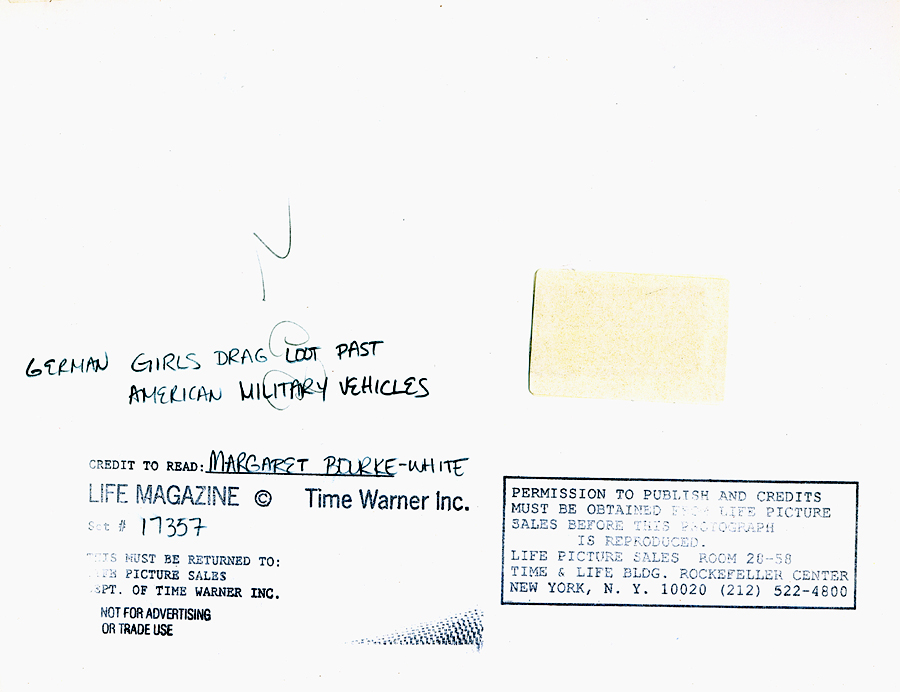 GERMAN GIRLS DRAG LOOT PAST
AMERICAN MILITARY VEHICLES
CREDIT TO READ: MARGARET BOURKE-WHITE
LIFE MAGAZINE © Time Warner Inc.
Set # 17357
THIS MUST BE RETURNED TO:
LIFE PICTURE SALES
DEPT. OF TIME WARNER INC.
NOT FOR ADVERTISING
OR TRADE USE
PERMISSION TO PUBLISH AND CREDITS
MUST BE OBTAINED FROM LIFE PICTURE
SALES BEFORE THIS PHOTOGRAPH
IS REPRODUCED.
LIFE PICTURE SALES ROOM 28-58
TIME & LIFE BLDG. ROCKEFELLER CENTER
NEW YORK, N. Y. 10020 (212) 522-4800